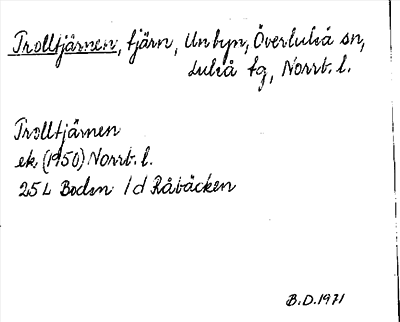 Trolltjärnen, tjärn, Unbyn, Överluleå sn,
Luleå tg, Norrb. l.
Trolltjärnen
ek (1950) Norrb. l.
25 L Boden 1 d Råbäcken
B.D. 1971